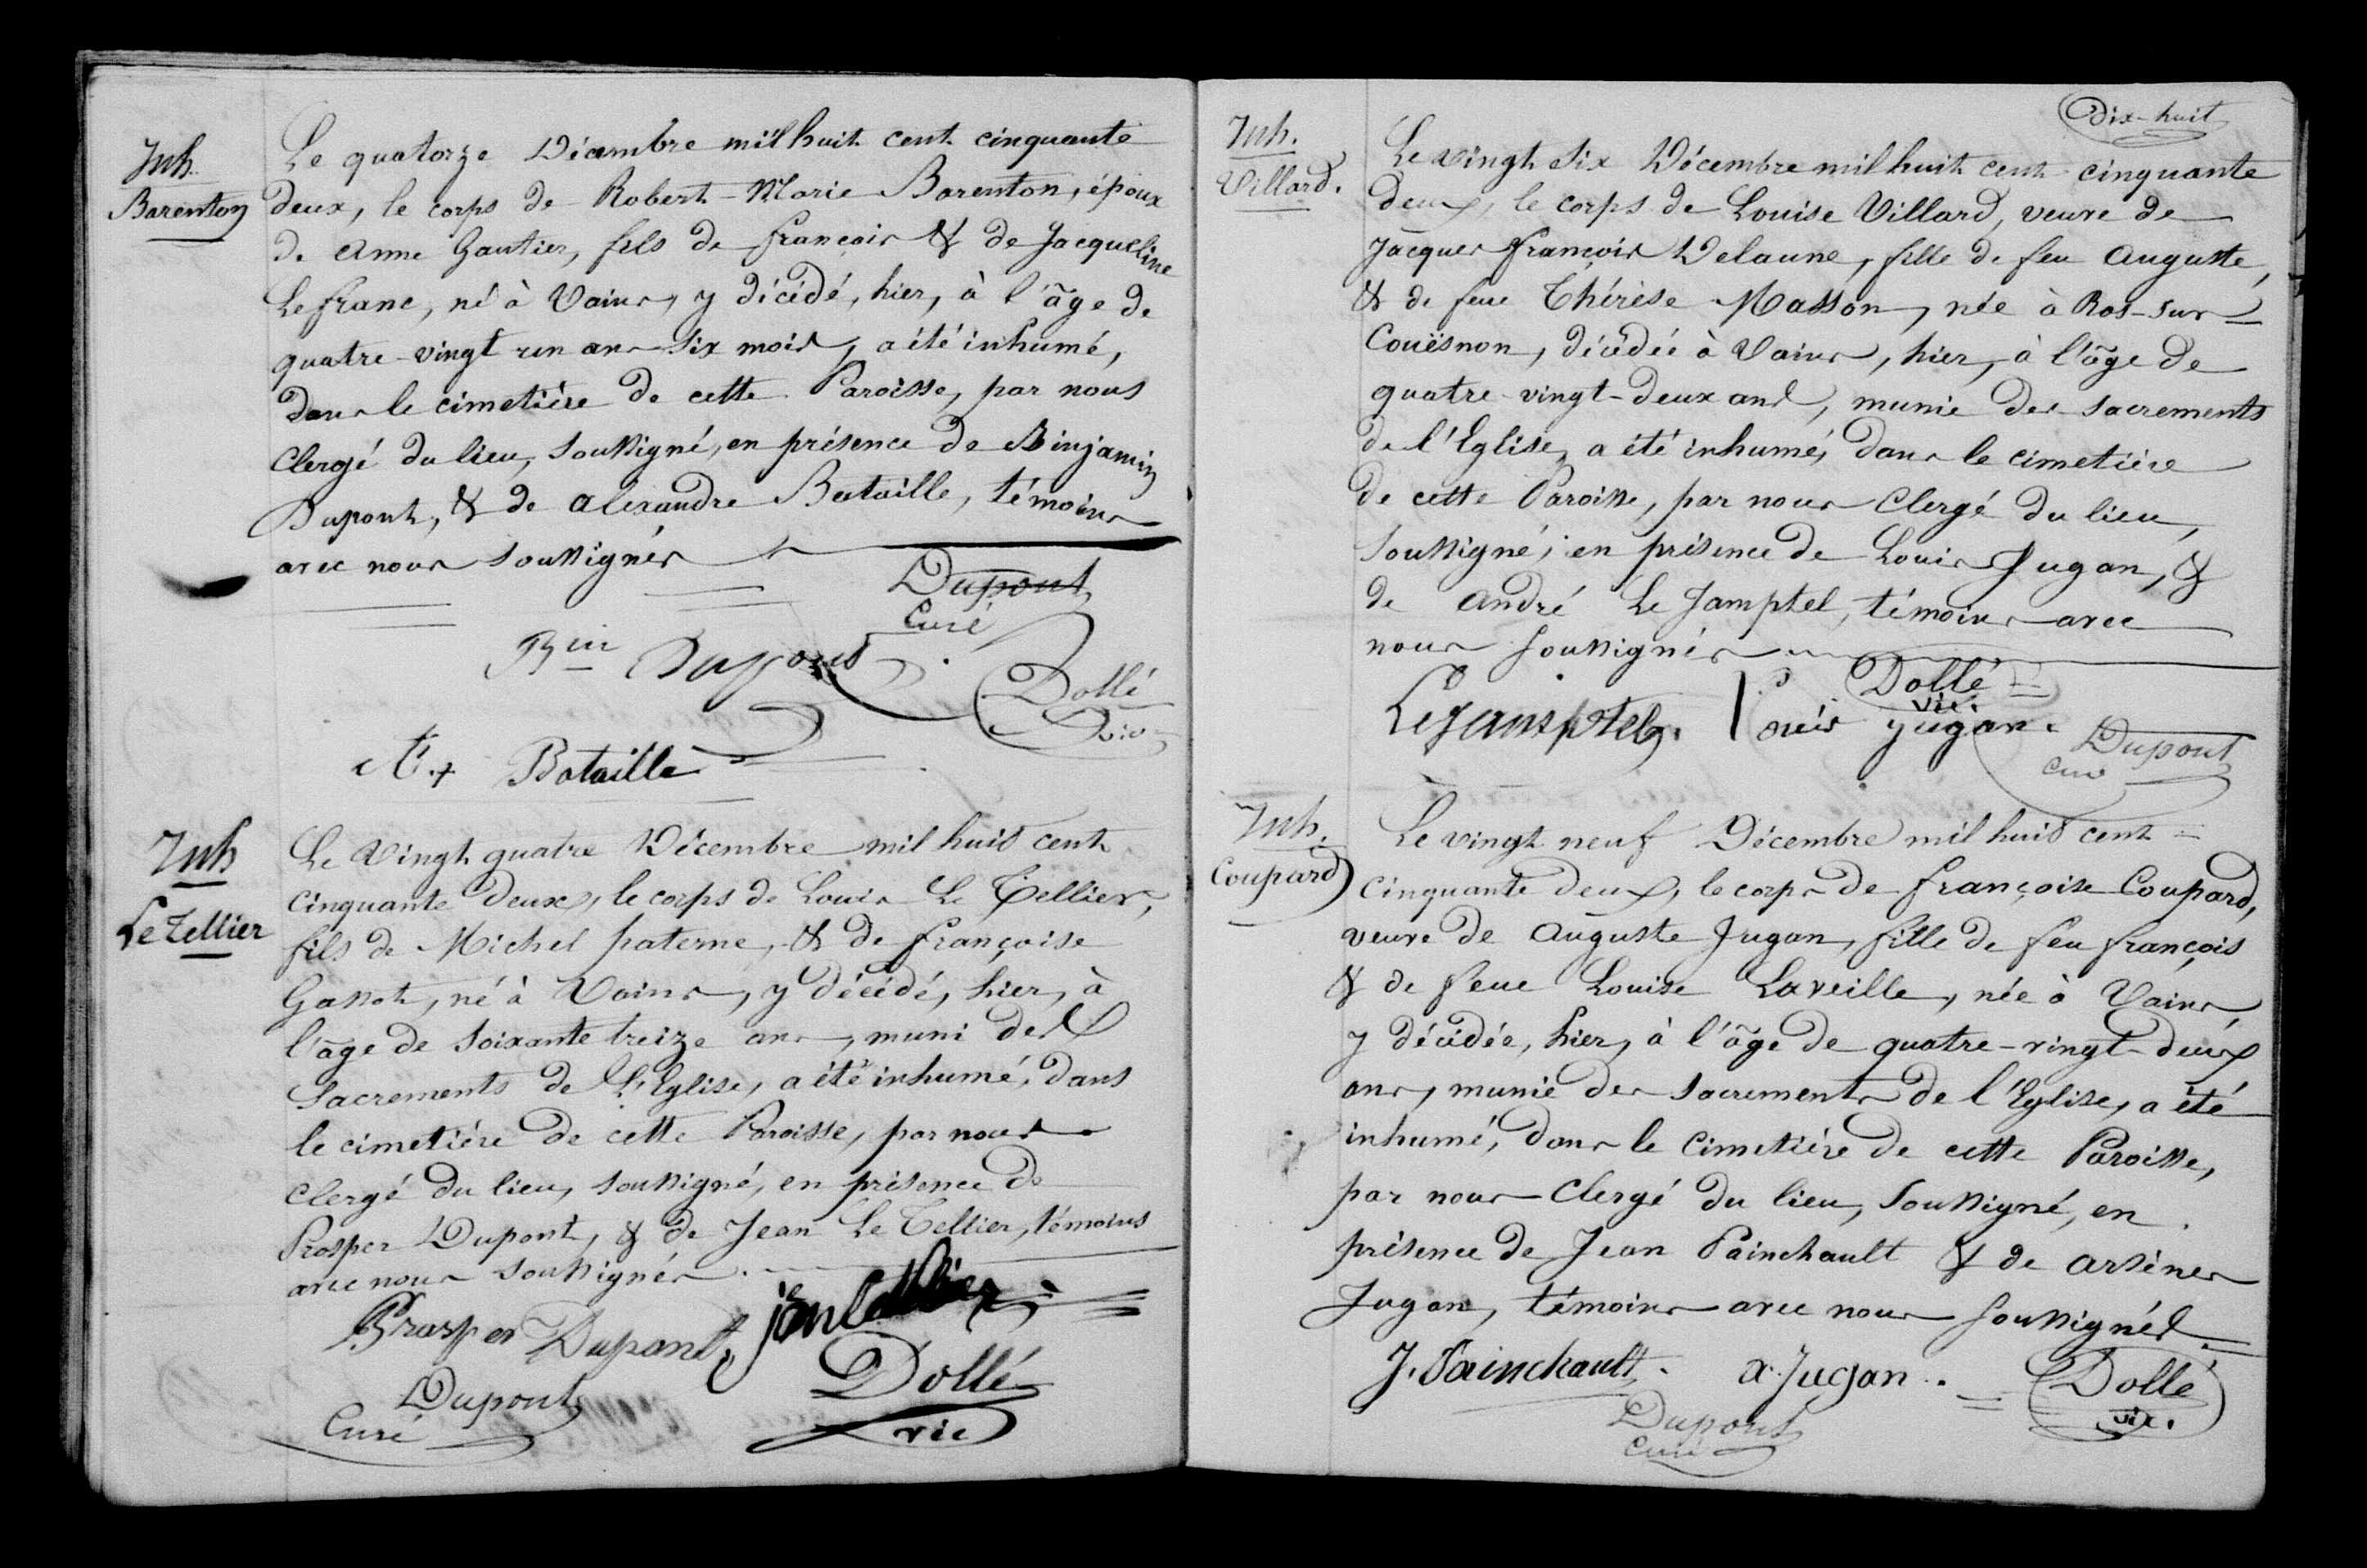 Inh.
Barenton
Le quatorze Décembre mil huit cent cinquante
deux, le corps de Robert-Marie Barenton, époux
de Anne Gautier, fils de françois & de Jacqueline
Lefranc, né à Vains, y décédé, hier, à l'âge de
quatre-vingt un ans six mois, a été inhumé,
dans le cimetière de cette Paroisse, par nous
Clergé du lieu, soussigné, en présence de Binjamin
Dupont, & de alexandre Bataille, témoins
avec nous soussignés
Dupont
Curé
Bin Dupont
Dollé
Vic
Al. Bataille
Inh
Le Tellier
Le Vingt quatre Décembre mil huit cent
cinquante deux, le corps de Louis Le Tellier,
fils de Michel paterne, & de françoise
Gassot, né à Vains, y décédé, hier, à
l'âge de soixante treize ans, muni des
sacrements de L'Eglise, a été inhumé, dans
le cimetière de cette Paroisse, par nous
Clergé du lieu, soussigné, en présence de
Prosper Dupont, & de Jean Le Tellier, témoins
avec nous soussignés.
Prosper Dupont,
Dollé
vic
Dupont
Curé
dix-huit
Inh.
Villard.
Le vingt six Décembre mil huit cent cinquante
deux, le corps de Louise Villard, veuve de
Jacques françois Delaune, fille de feu Auguste,
& de feue Thérèse Masson, née à Ros-sur-
Couësnon, décédée à Vains, hier, à l'âge de
quatre-vingt-deux ans, munie des sacrements
de l'Eglise, a été inhumé, dans le cimetière
de cette Paroisse, par nous Clergé du lieu,
soussigné, en présence de Louis Jugan, &
de André Le Jamptel, témoins avec
nous soussignés
Dollé
Vic.
LeJamptel. Louis Jugan.
Dupont
Curé
Inh.
Coupard
Le vingt neuf Décembre mil huit cent
cinquante deux, le corps de françoise Coupard,
veuve de Auguste Jugan, fille de feu françois
& de feue Louise Laveille, née à Vains,
y décédée, hier, à l'âge de quatre-vingt-deux
ans, munie des sacrements de l'Eglise, a été
inhumé, dans le Cimetière de cette Paroisse,
par nous Clergé du lieu, soussigné, en
présence de Jean Painchault & de Arsènes
Jugan, témoins avec nous soussignés.
J. Painchault. a. Jugan.
Dollé
vic.
Dupont
Curé